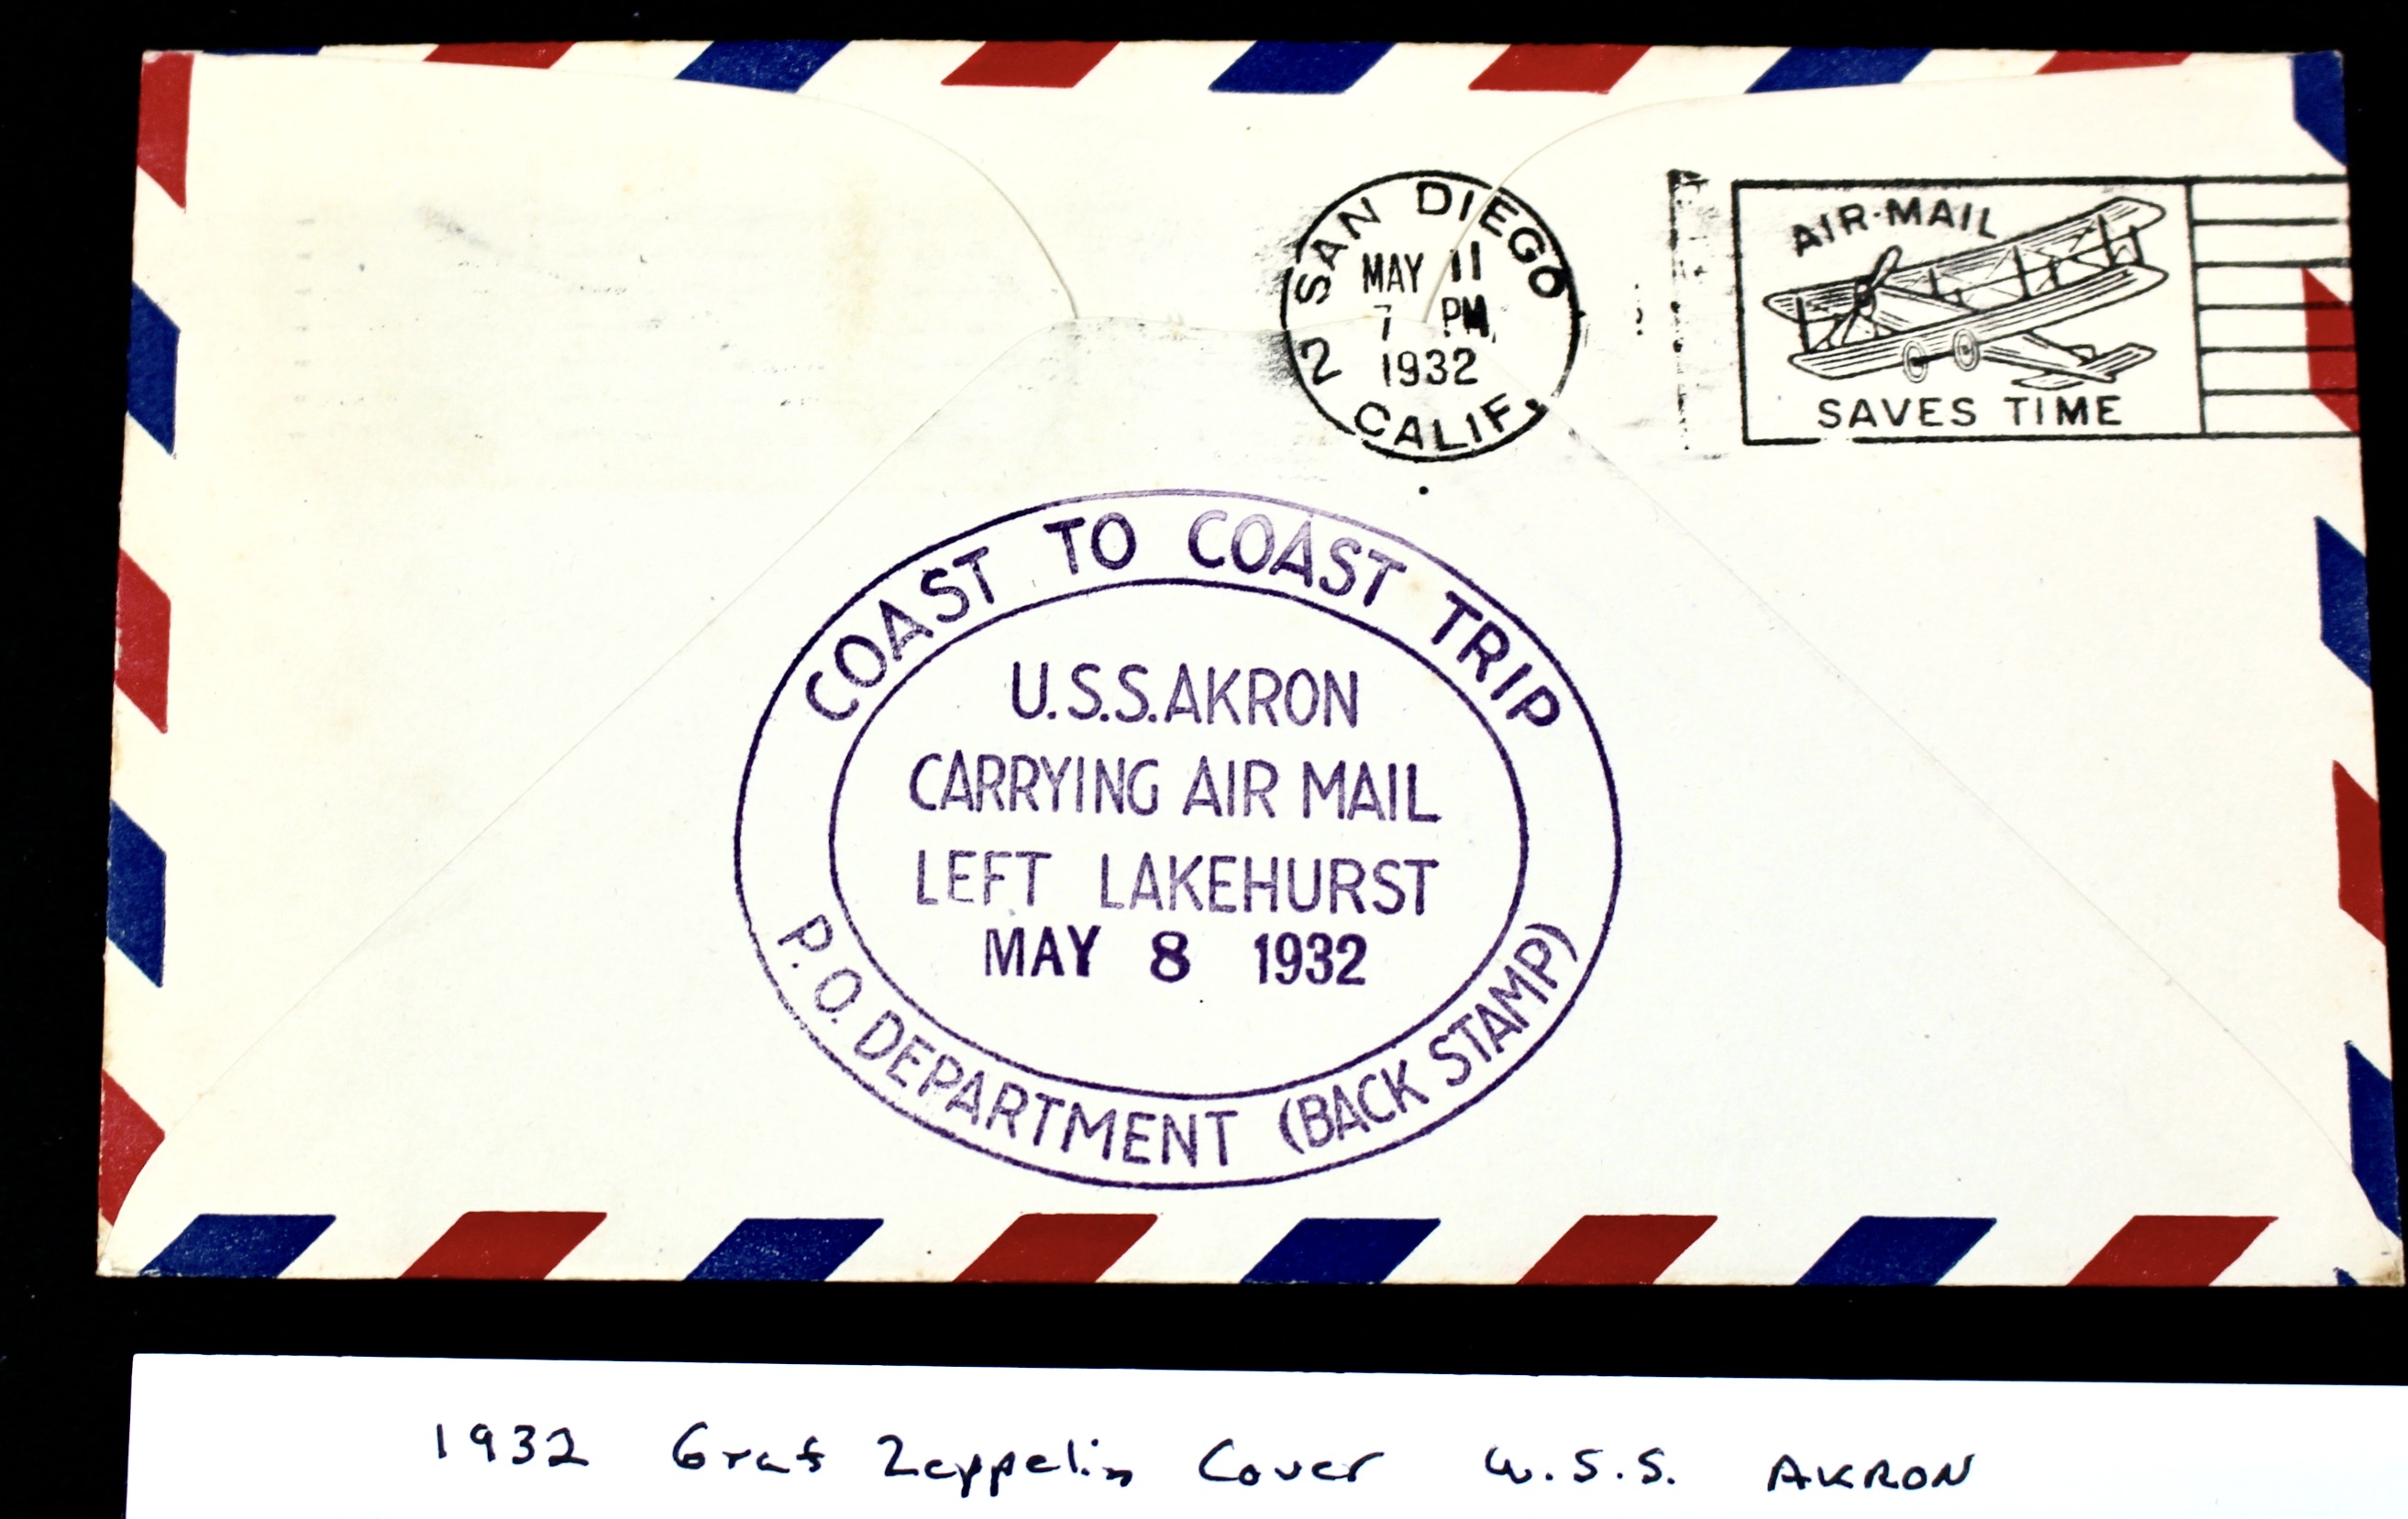 SAN DIEGO
MAY 11
7 PM
1932
2
CALIF.
AIR-MAIL
SAVES TIME
COAST TO COAST TRIP
U.S.S.AKRON
CARRYING AIR MAIL
LEFT LAKEHURST
MAY 8 1932
P.O. DEPARTMENT (BACK STAMP)
1932 Graf Zeppelin Cover U.S.S. AKRON